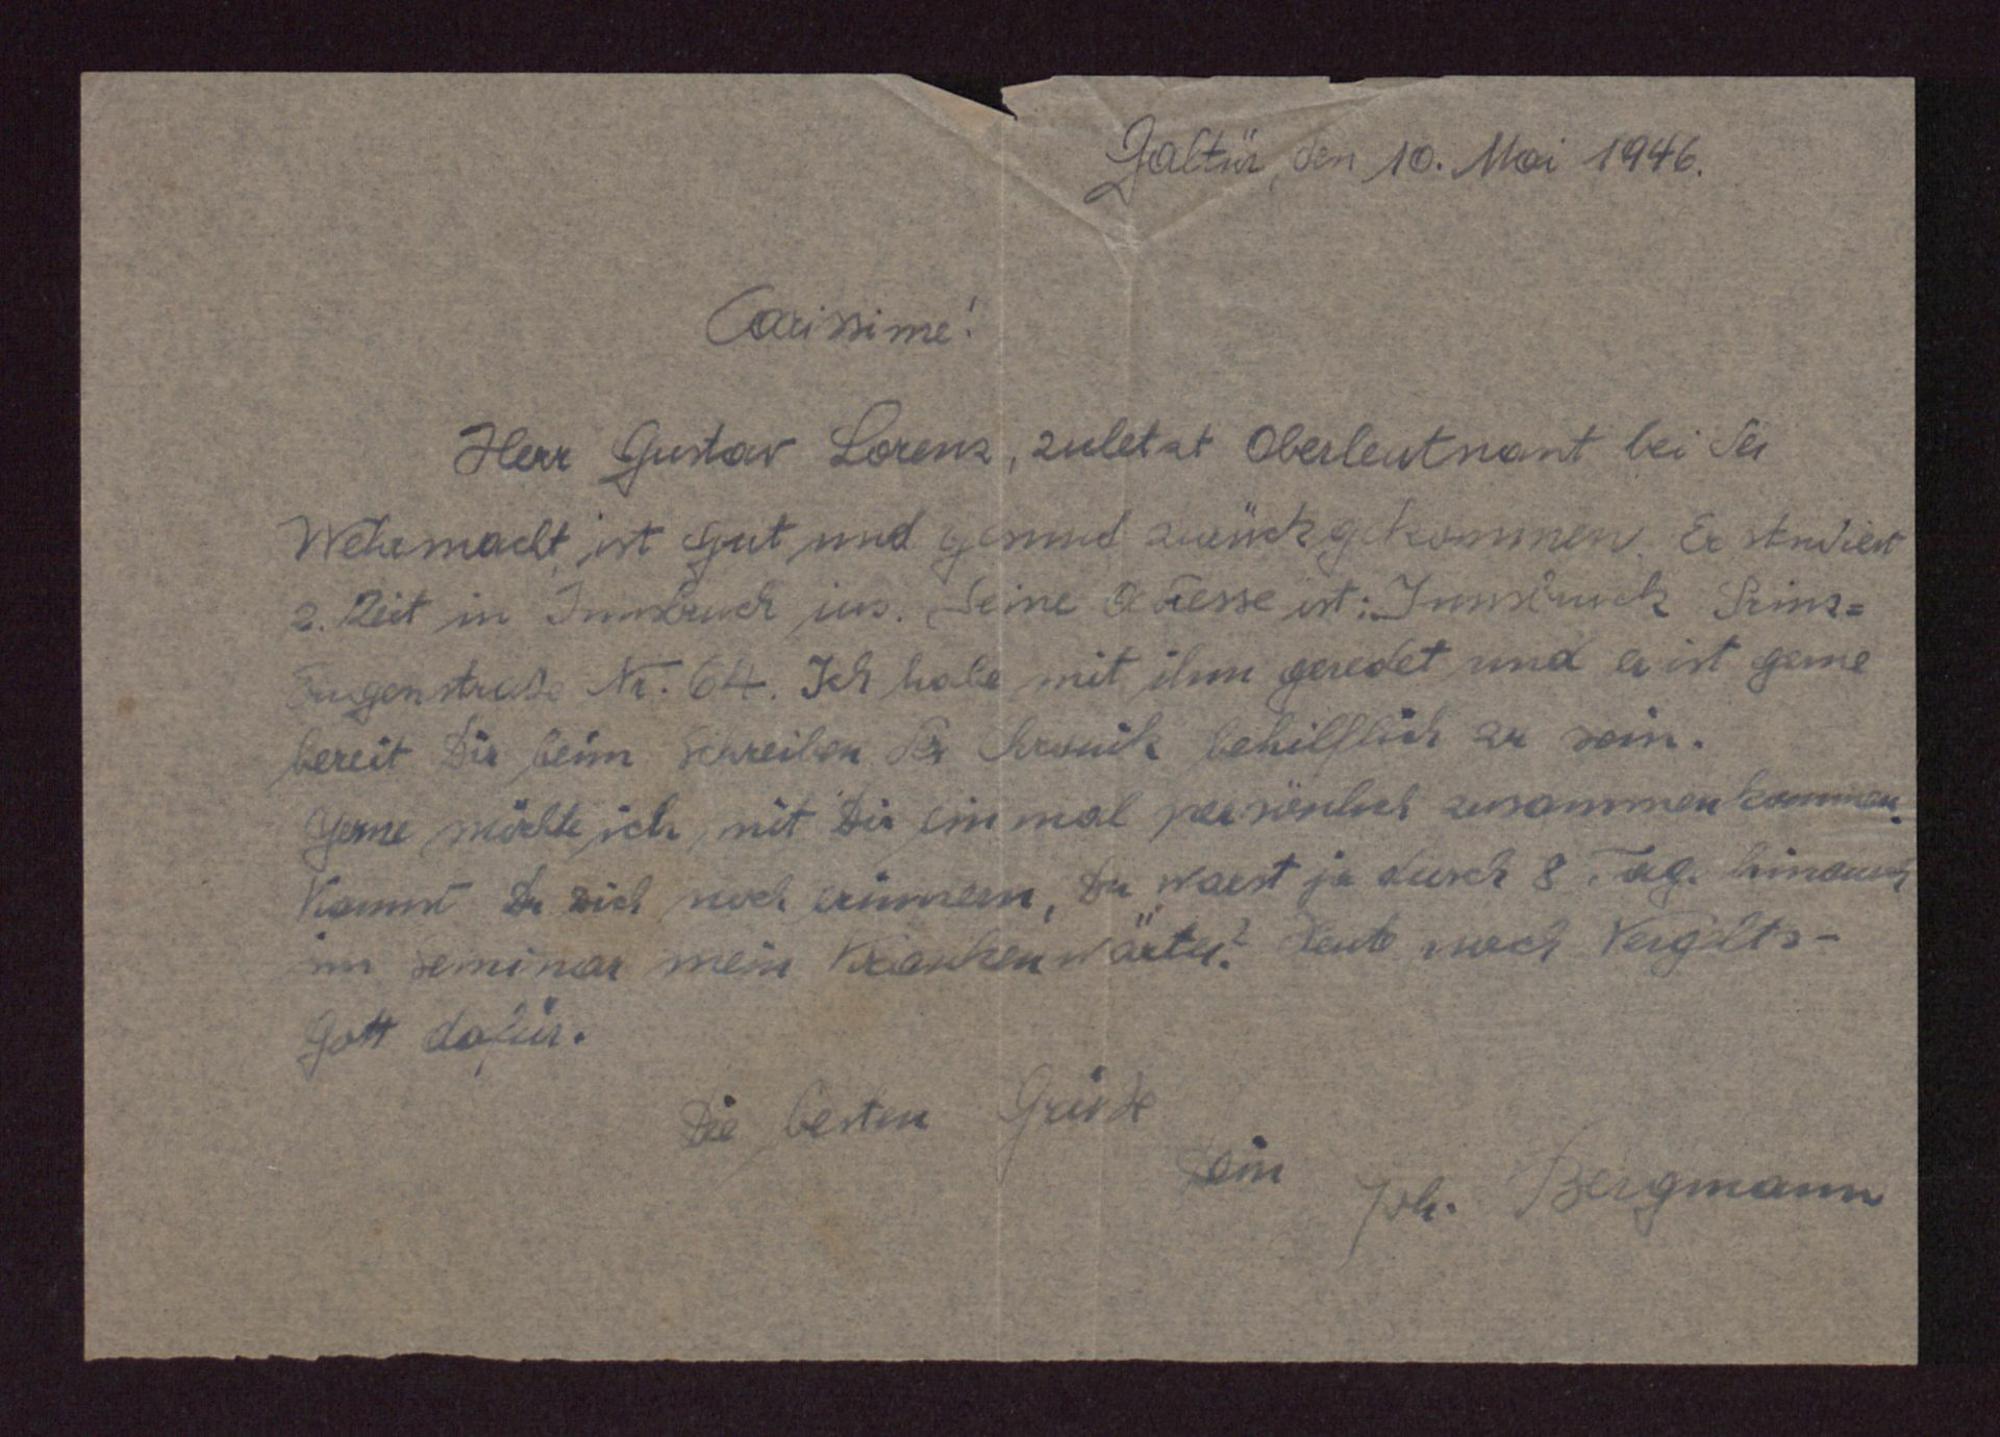 Galtür, den 10. Mai 1946.
Carissime!
Herr Gustav Lorenz, zuletzt Oberleutnant bei der
Wehrmacht, ist gut und gesund zurückgekommen. Er studiert
z. Zeit in Innsbruck jus. Seine Adresse ist: Innsbruck Prinz=
Eugenstraße Nr. 64. Ich habe mit ihm geredet und er ist gerne
bereit Dir beim Schreiben der Kronik behilflich zu sein.
Gerne möchte ich mit Dir einmal persönlich zusammenkommen.
Kannst Du Dich noch erinnern, Du warst ja durch 8 Tag. hindurch
im Seminar mein Krankenwärter? Heute noch Vergelts-
Gott dafür.
Die besten Grüße
Dein Joh. Bergmann